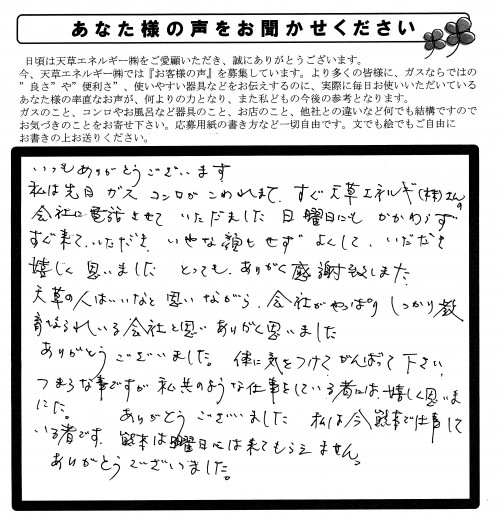 あなた様の声をお聞かせください
日頃は天草エネルギー㈱をご愛顧いただき、誠にありがとうございます。
今、天草エネルギー㈱では『お客様の声』を募集しています。より多くの皆様に、ガスならではの
”良さ”や”便利さ”、使いやすい器具などをお伝えするのに、実際に毎日お使いいただいている
あなた様の率直なお声が、何よりの力となり、また私どもの今後の参考となります。
ガスのこと、コンロやお風呂など器具のこと、お店のこと、他社との違いなど何でも結構ですので
お気づきのことをお寄せ下さい。応募用紙の書き方など一切自由です。文でも絵でもご自由に
お書きの上お送りください。
いつもありがとうございます
私は先日ガスコンロがこわれまして、すぐ天草エネルギ(株)さんの
会社に電話させていただました 日曜日にもかかわらず
すぐ来て、いただき、いやな顔とせず よくして、いだだき
嬉しく思いました とっても、ありがく感謝致しました
天草の人はいいなと思いながら、会社がやっぱりしっかり教
育なられいる会社と思いありがく思いました
ありがとうございました。体に気をつけてがんばって下さい
つまらな事ですが私共のような仕事をしている者には、嬉しく思いま
した。 ありがとうございました 私は今熊本で仕事して
いる者です、熊本は曜日には来てもらえません。
ありがとうございました。